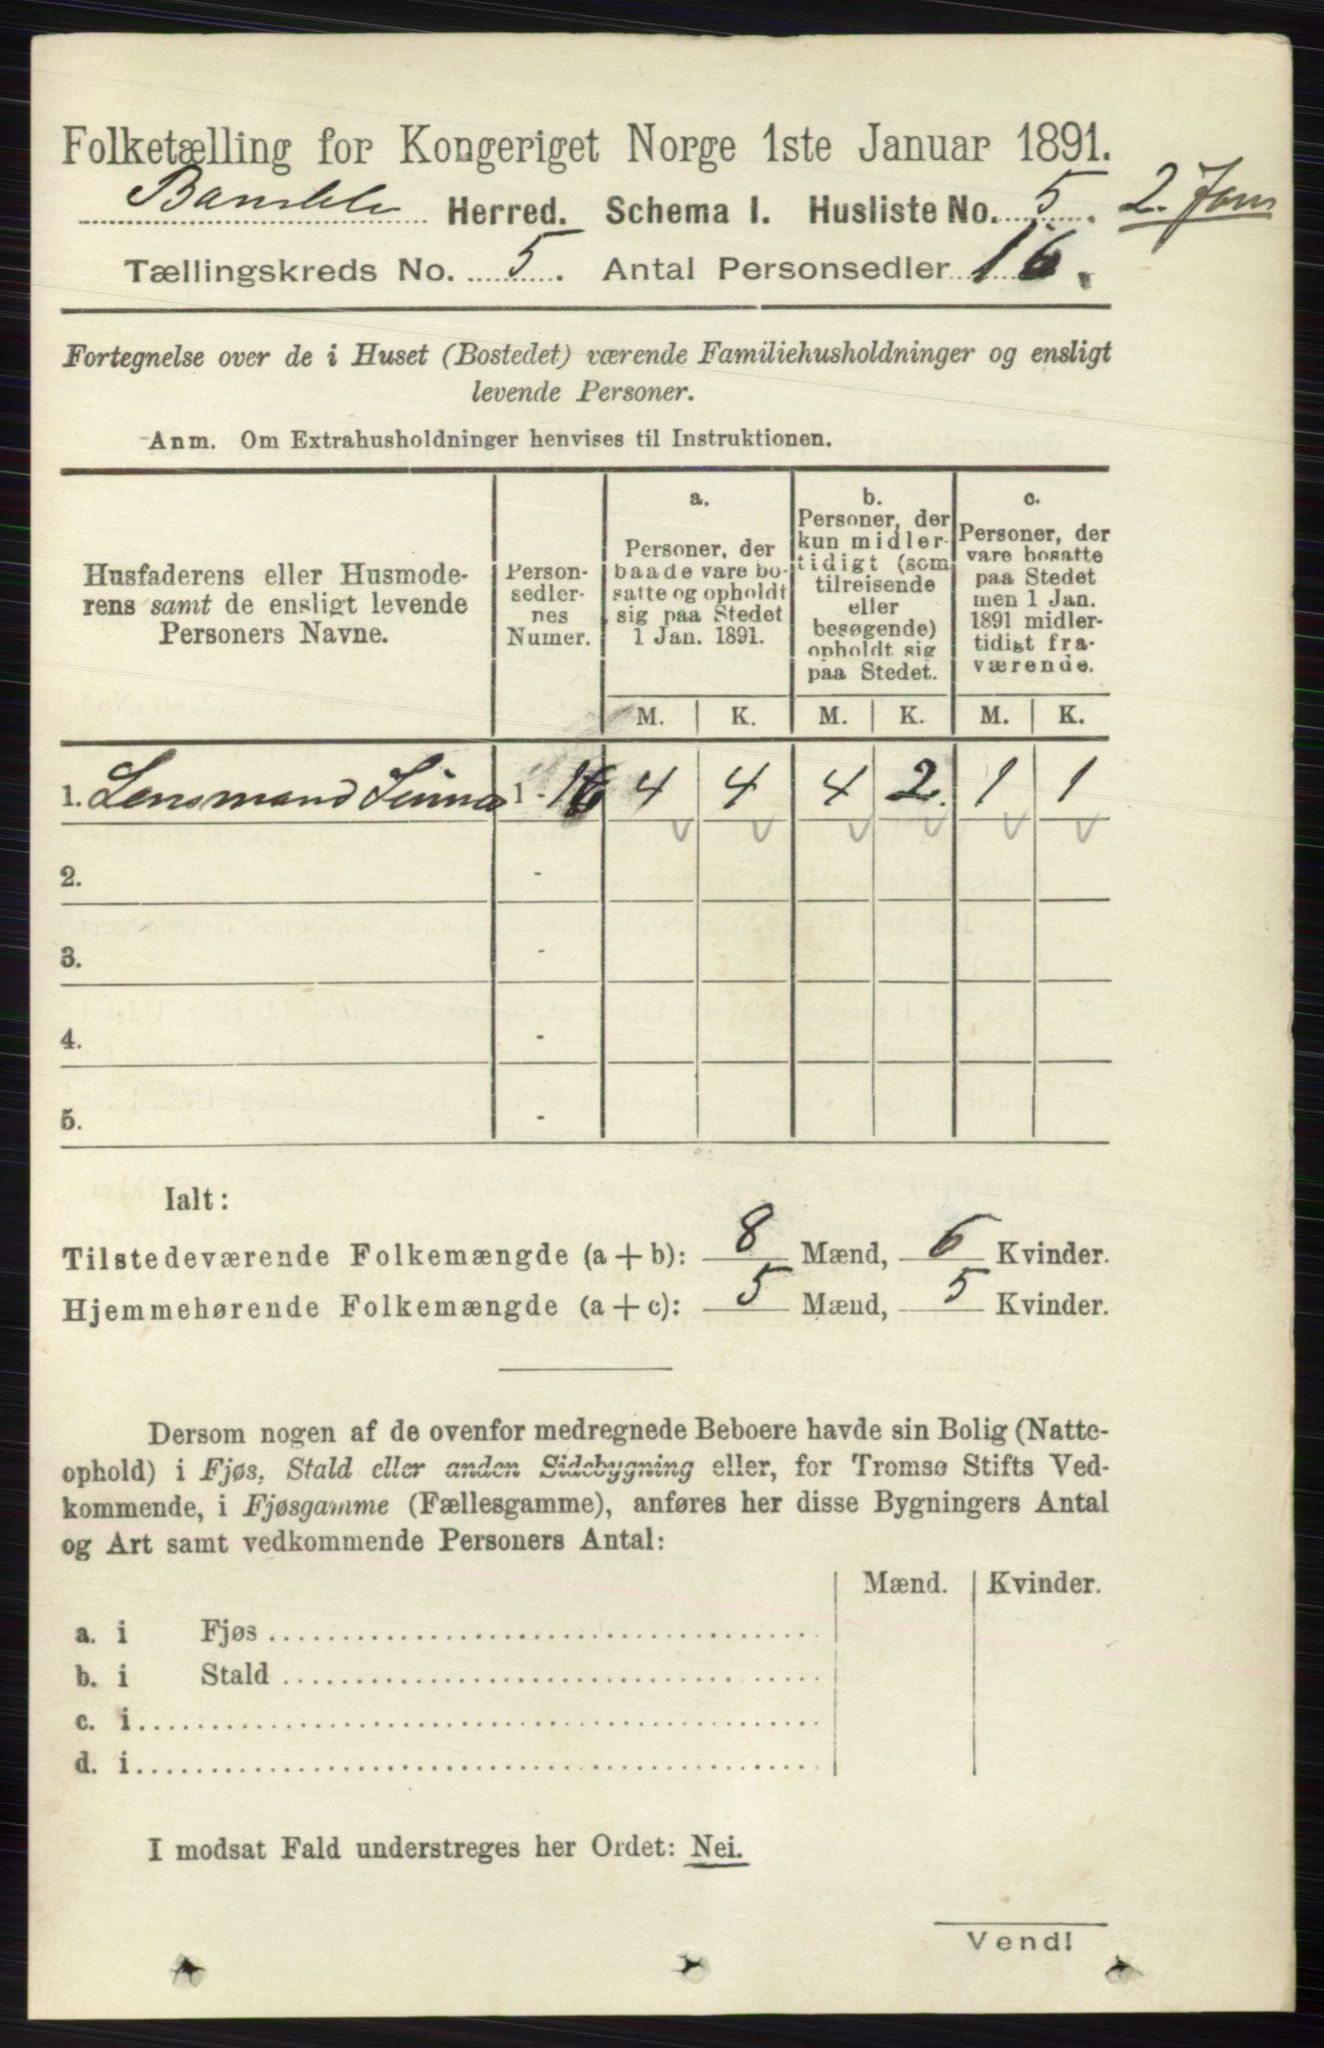 Folketælling for Kongeriget Norge 1ste Januar 1891.
Bamble Herred. Schema I. Husliste No. 5. 2. Jan
Tællingskreds No. 5. Antal Personsedler 16.
Fortegnelse over de i Huset (Bostedet) værende Familiehusholdninger og ensligt
levende Personer.
Anm. Om Extrahusholdninger henvises til Instruktionen.
Husfaderens eller Husmode-
rens samt de ensligt levende
Personers Navne.
Person-
sedler-
nes
Numer.
a.
Personer, der
baade vare bo-
satte og opholdt
sig paa Stedet
1 Jan. 1891.
b.
Personer, der
kun midler-
tidigt (som
tilreisende
eller
besøgende)
opholdt sig
paa Stedet.
c.
Personer, der
vare bosatte
paa Stedet
men 1 Jan.
1891 midler-
tidigt fra-
værende.
M. K. M. K. M. K.
1. Lensmand 1 - 16 4 4 4 2 1 1
2. -
3. -
4. -
5. -
Ialt:
Tilstedeværende Folkemængde (a + b): 8 Mænd, 6 Kvinder.
Hjemmehørende Folkemængde (a + c): 5 Mænd, 5 Kvinder.
Dersom nogen af de ovenfor medregnede Beboere havde sin Bolig (Natte-
ophold) i Fjøs, Stald eller anden Sidebygning eller, for Tromsø Stifts Ved-
kommende, i Fjøsgamme (Fællesgamme), anføres her disse Bygningers Antal
og Art samt vedkommende Personers Antal:
Mænd. Kvinder.
a. i Fjøs
b. i Stald
c. i
d. i
I modsat Fald understreges her Ordet: Nei.
Vend!